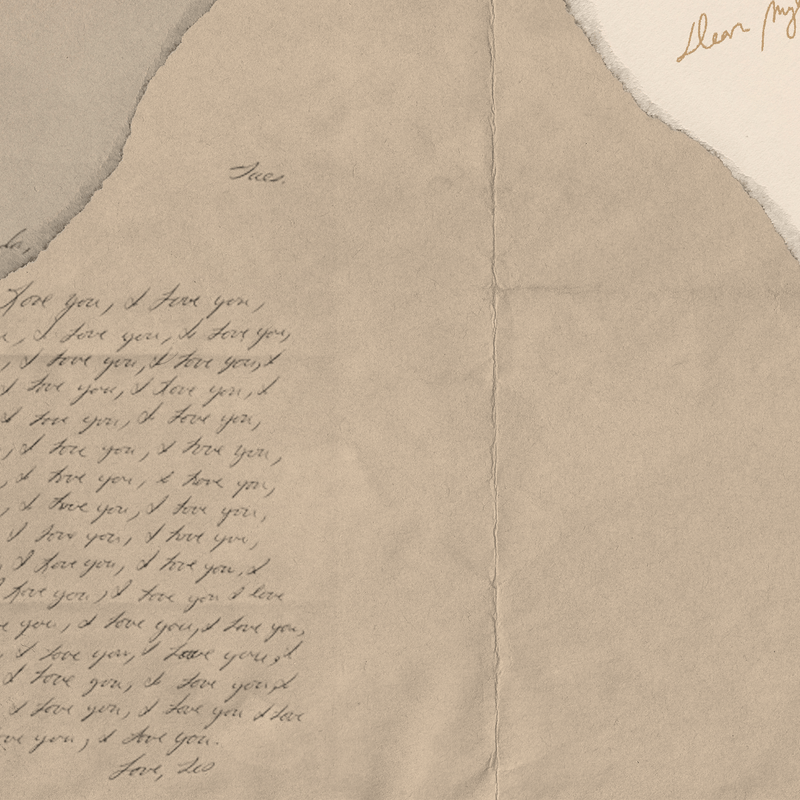 Dear
Tues.
Love you, I love you,
I love you, I love you,
, I love you, I love you, I
I love you, I love you, I
I love you, I love you,
, I love you, I love you,
, I love you, I love you,
, I love you, I love you,
I love you, I love you,
, I love you, I love you, I
love you, I love you I love
you, I love you, I love you,
, I love you, I love you, I
I love you, I love you, I
I love you, I love you I love
you, I love you.
Love, Leo